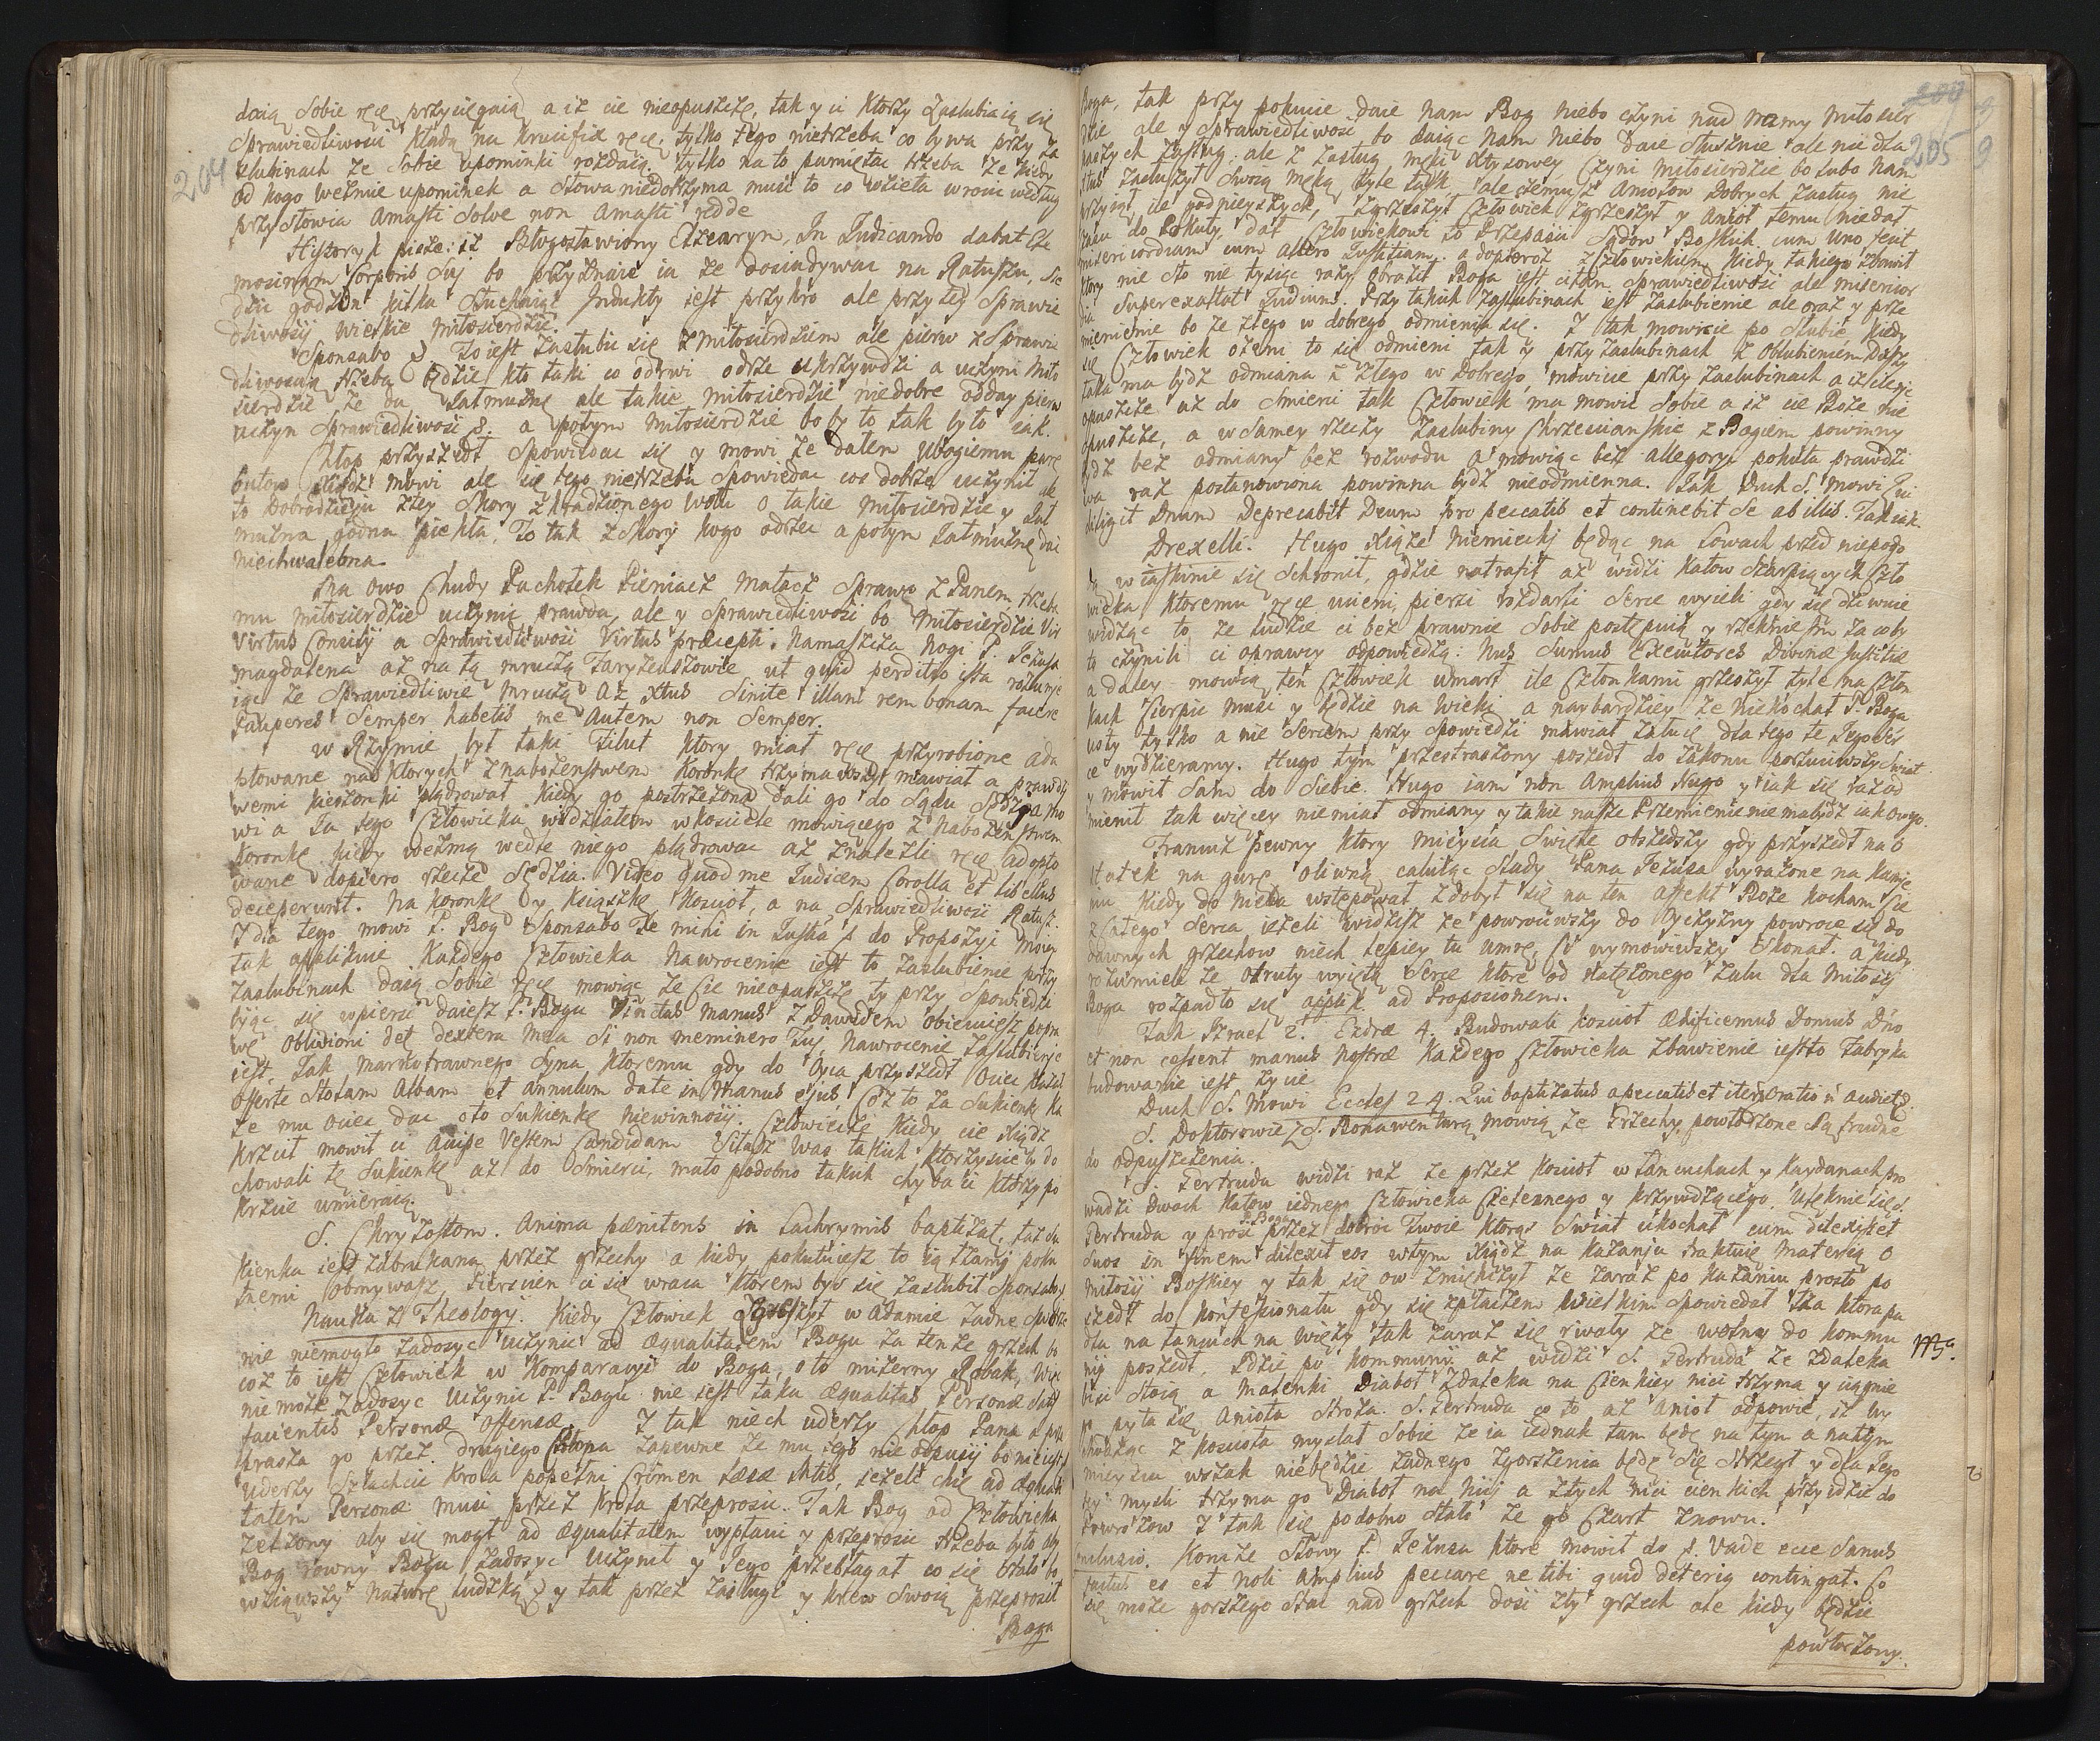 204
daią Sobie ręę przysięgaią a iż cie nieopuszczę, tak y ci Ktorzy zaslubiaią się
Sprawiedliwosci Kładą na Krucifix ręce, tylko tego nietrzeba co bywa przy za
slubinach ze Sobie upominki rozdaią, tylko na to pamiętac trzeba ze kiedy
Od kogo weźmie upominek a Słowa niedotrzyma musi to co wzieła wrocic według
przysłowia Amasti Solve non Amasti redde
Historyk pisze: iż Błogosławiony Elzearyn, In Iudicando dabat Ele
mosinam Corporis Sui bo przyznaie ia ze dosiadywac na Ratuszu, Sie
dziec godzin kilka Słuchaiąc Indukty iest przykro ale przy tey Sprawie
dliwosci wielkie miłosierdzie.
Sponsabo &. To iest zaslubic się z miłosierdziem ale pierw z Sprawie
dliwoscią trzeba będzie kto taki co odrwi odrze ukrzywdzi a uczyni miło
sierdzie ze da Jałmużnę ale takie miłosierdzie niedobre odday pierw
uczyn Sprawiedliwosc &. a potym miłosierdzie bo by to tak było iak.
Chłop przyszedł Spowiadac się y mowi ze dałem Ubogiemu parę
butow Xiądz mowi ale się tego nietrzeba Spowiadac cos dobrze uczynił ale
to Dobrodzieju z tey Skory z kradzionego Wołu o takie miłosierdzie y Jał
mużna godna piekła, To tak z Skory kogo odrzec a potym Jałmużnę dac
niechwalebna.
Ma owo Chudy Pachołek Pieniacz Matacz Sprawę z Panem, trzeba
mu miłosierdzie uczynic prawda, ale y Sprawiedliwosci bo Miłosierdzie Vir
Virtus Consilij a Sprawiedliwosci Virtus præcepti. Namaszcza Nogi P. Jezusa
Magdalena aż na tą mruczą Faryzeuszowie ut quid perditio ista rozumie
iąc ze Sprawiedliwie mruczą Aż Xtus Sinite illam rem bonam facere
Pauperes Semper habetis me Autem non Semper.
w Rzymie był taki Filut ktory miał ręce przyrobione ada
ptowane na ktorych z nabozenstwem Koronkę trzymawszy mawiał a prawdzi
wemi kieszonki plądrował kiedy go postrzezono dali go do Sądu Sędzia mo
wi a Ja tego Człowieka widziałem w kosciele mowiącego z Nabozenstwem
Koronkę kiedy wezmą wedle niego plądrowac aż znalezli ręce adopto
wane dopiero rzecze Sędzia. Video quod me Iudicem Corolla et libellus
deceperunt. Na Koronkę y Książkę Kosciol, a na Sprawiedliwosci Ratusz.
I dla tego mowi P. Bog Sponsabo Te mihi in Justa & do Propozyi Moiey
tak applikuie Każdego Człowieka Nawrocenie iest to zaslubienie przy
Zaslubinach daią Sobie ręce mowiąc ze Cie nieopuszczę ty przy Spowiedzi
biiąc się w piersi daiesz P. Bogu Vinctas manus z Dawidem obiecuiesz popra
wę Oblivioni det dextera mea Si non meminero Tui. Nawrocenie zaslubienie
iest, Jak marnotrawnego Syna, Ktoremu gdy do Oyca przyszedł Ociec kazał
Offerte Stolam Albam et annulum date in manus ejus Coż to za Sukienkę Ka
ze mu ociec dac oto Sukienkę Niewinnosci. Człowiecze Kiedy cie Xiądz
Krzcił mowił ci Accipe Vestem Candidam Wieluz was takich ktorzyscieby do
chowali tę Sukienkę aż do Smierci, mało podobno takich chyba ci ktorzy po
Krzcie umieraią.
S. Chryzostom. Anima pænitens in Lachrymis baptizat, taz Su
kienka iest zabrukana przez grzechy a kiedy pokutuiesz to ią łzami poku
tnemi obmywasz, Pierscien ci się wraca Ktorem byś się zaslubił Sponsabo &
Nauka z Theologij. Kiedy Człowiek zgrzeszył w Adamie zadne stworze
nie niemogło zadosyc uczynic ad æqualitatem Bogu za tenze grzech bo
coż to iest Człowiek w Komparacyi do Boga, oto mizerny Robak, więc
nie może Zadosyc uczynic P. Bogu nie iest taka æqualitas Personæ satis
facientis Personæ offensæ. I tak niech uderzy Chłop Pana a prze
prasza go przez drugiego Chłopa zapewne ze mu tego nie odpusci bo nie iest
uderzy Szlachcic Krola popełni Crimen læsæ Mtis, iezeli chcę ad æquali
tatem Personæ musi przez Krola przeprosic. Tak Bog od Człowieka
zelzony aby się mogł ad æqualitatem wypłacic y przeprosic trzeba było aby
Bog rowny Bogu zadosyc uczynił y Jego przebłagał co się Stało bo
wziąwszy Naturę ludzką y tak przez zasługi y krew Swoią przeprosił
Boga

209
205
Boga, tak przy pokucie daie nam Bog niebo czyni nad namy miłosier
dzie ale y Sprawiedliwosc bo daiąc Nam Niebo daie Słusznie ale nie dla
naszych zasług: ale z zasług męki Xtusowey, Czyni miłosierdzie bo lubo Nam
Xtus zasłużył Swoią Męką tyle łask, ale czemusz Aniołow dobrych zasług nie
przyiął, ile godnieyszych, Zgrzeszył Człowiek zgrzeszył y Anioł temu niedał
czasu do Pokuty, dał Człowiekowi to Przepasci Sądow Boskich cum Uno fecit
misericordiam cum Altero Justitiam. a dopieroż z Człowiekiem kiedy takiego zbawił
ktory nie sto nie tysiąc razy obraził Boga iest citra Sprawiedliwosci ale misericor
dia Superexaltat Judicium. Przy takich zaslubinach iest zaslubienie ale oraz y prze
mienienie bo ze złego w dobrego odmienia się. I tak mowicie po Slubie kiedy
się Człowiek ożeni to się odmieni tak y przy zaslubinach z Oblubiencem Duszy
taka ma bydz odmiana z złego w dobrego, mowicie przy zaslubinach a iż cie nie
opuszczę aż do smierci tak Człowiek ma mowic Sobie a iż cie Boże nie
opuszczę, a w Samey rzeczy Zaslubiny Chrzescianskie z Bogiem powinny
bydz bez odmiany bez rozwodu a mowiąc bez allegoryi pokuta prawdzi
wa raz postanowiona powinna bydz nieodmienna. Jak Duch S. mowi Qui
diligit Deum Deprecabit Deum pro peccatis et continebit Se ab illis. Tak iak
Drexelli. Hugo Xiąże Niemiecki będąc na Łowach przed niepogo
dą w iaskinie się Schronił, gdzie natrafił aż widzi katow Szarpiących czło
wieka ktoremu ręce ucieni, piersi rozdarli Serce wyieli gdy się dziwnie
widząc to, ze ludzie ci bez prawnie Sobie postępuią y rzeknie im za coby
to czynili ci oprawcy odpowiedzą: Nos Sumus Executores Divinæ Justitiæ
a daley mowią ten Człowiek umarł ile Członkami grzeszył tyle na człon
kach Cierpic musi y będzie na wieki a naybardziey ze Niekochał P. Boga
usty tylko a nie Sercem przy Spowiedzi mawiał zaluię dla tego te Jego Ser
ce wydzieramy. Hugo tym przestraszony poszedł do zakonu porzuciwszy Swiat
y mowił Sam do Siebie. Hugo iam non Amplius Hugo y iak się raz od
mienił tak więcey niemiał odmiany y takie nasze Przemienienie ma bydz iak owego.
Francuz pewny ktory mieysca Swięte obszedszy gdy przyszedł na o
statek na gurę Oliwną całuiąc slady Pana Jezusa wyrażone na Kamie
niu Kiedy do Nieba wstępował zdobył się na ten affekt Boże kocham Cie
z całego Serca ieżeli widzisz że powrociwszy do Oyczyzny powroce się do
dawnych grzechow niech lepiey tu umrę, Co wymowiwszy Skonał. a Kiedy
rozumieli ze otruty wyięto Serce ktore od natężonego zalu dla Miłosci
Boga rozpadło się applik. ad Propositionem.
Tak Izrael 2. Esdræ 4. Budowali kosciol Ædificemus Domus Dno
et non cessent manus nostræ Każdego Człowieka Zbawienie iestto Fabryka
budowanie iest zycie
Duch S. Mowi Eccles 24. Qui baptizatus a peccatis et iterum Oratio n audiet &.
S. Doktorowie z S. Bonawenturą mowią ze Grzechy powtorzone Są trudne
do odpuszczenia.
S. Gertruda widzi raz ze przez Kosciol w łancuchach y Kaydanach pro
wadzi dwoch Katow iednego Człowieka Cielesnego y krzywdzącego. Ulęknie się S.
Gertruda y prosi P. Boga przez dobroc Twoie ktorąs Swiat ukochał cum dilexisset
Suos in finem dilexit eos w tym Xiądz na Kazaniu traktuię Materią o
miłosci Boskiey y tak się ow zmiękczył ze zaraz po Kazaniu prosto po
szedł do Konfesionału gdy się z płaczem wielkim Spowiadał łza ktora pa
dła na łancuch na więzy tak zaraz się rwały ze wolny do Kommu
nij poszedł, Idzie po Kommunij aż widzi S. Gertruda ze zdaleka
bisi Stoią a malenki Diaboł zdaleka na Cienkiey nici trzyma y ciągnie
go pyta się Anioła Stroza. S. Gertruda co to aż Anioł odpowie, iż wy
chodząc z kosciola myslał Sobie ze ia iednak tam będę na tym a na tym
mieyscu wszak niebędzie zadnego zgorszenia będę się Strzegł y dla tego
tey mysli trzyma go Diabol na nici a z tych nici cienkich przyidzie do
Powrozow I tak się podobno stało ze go Czart znowu.
Conclusio. Koncze Słowy P. Jezusa ktore mowił do &. Vade ecce Sanus
factus es et noli Amplius peccare ne tibi quid deterius contingat. Co
się może gorszego stac nad grzech dosc zły grzech ale kiedy będzie
powtorzony.